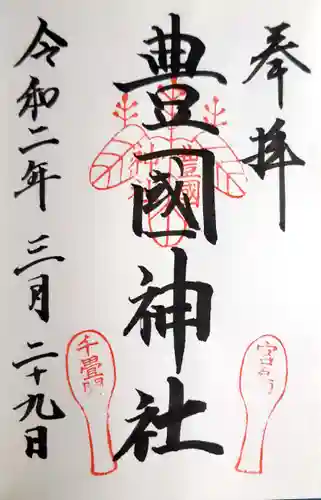 奉拝
豊國神社
令和二年三月二十九日
豊國
神社
千畳閣
宮島